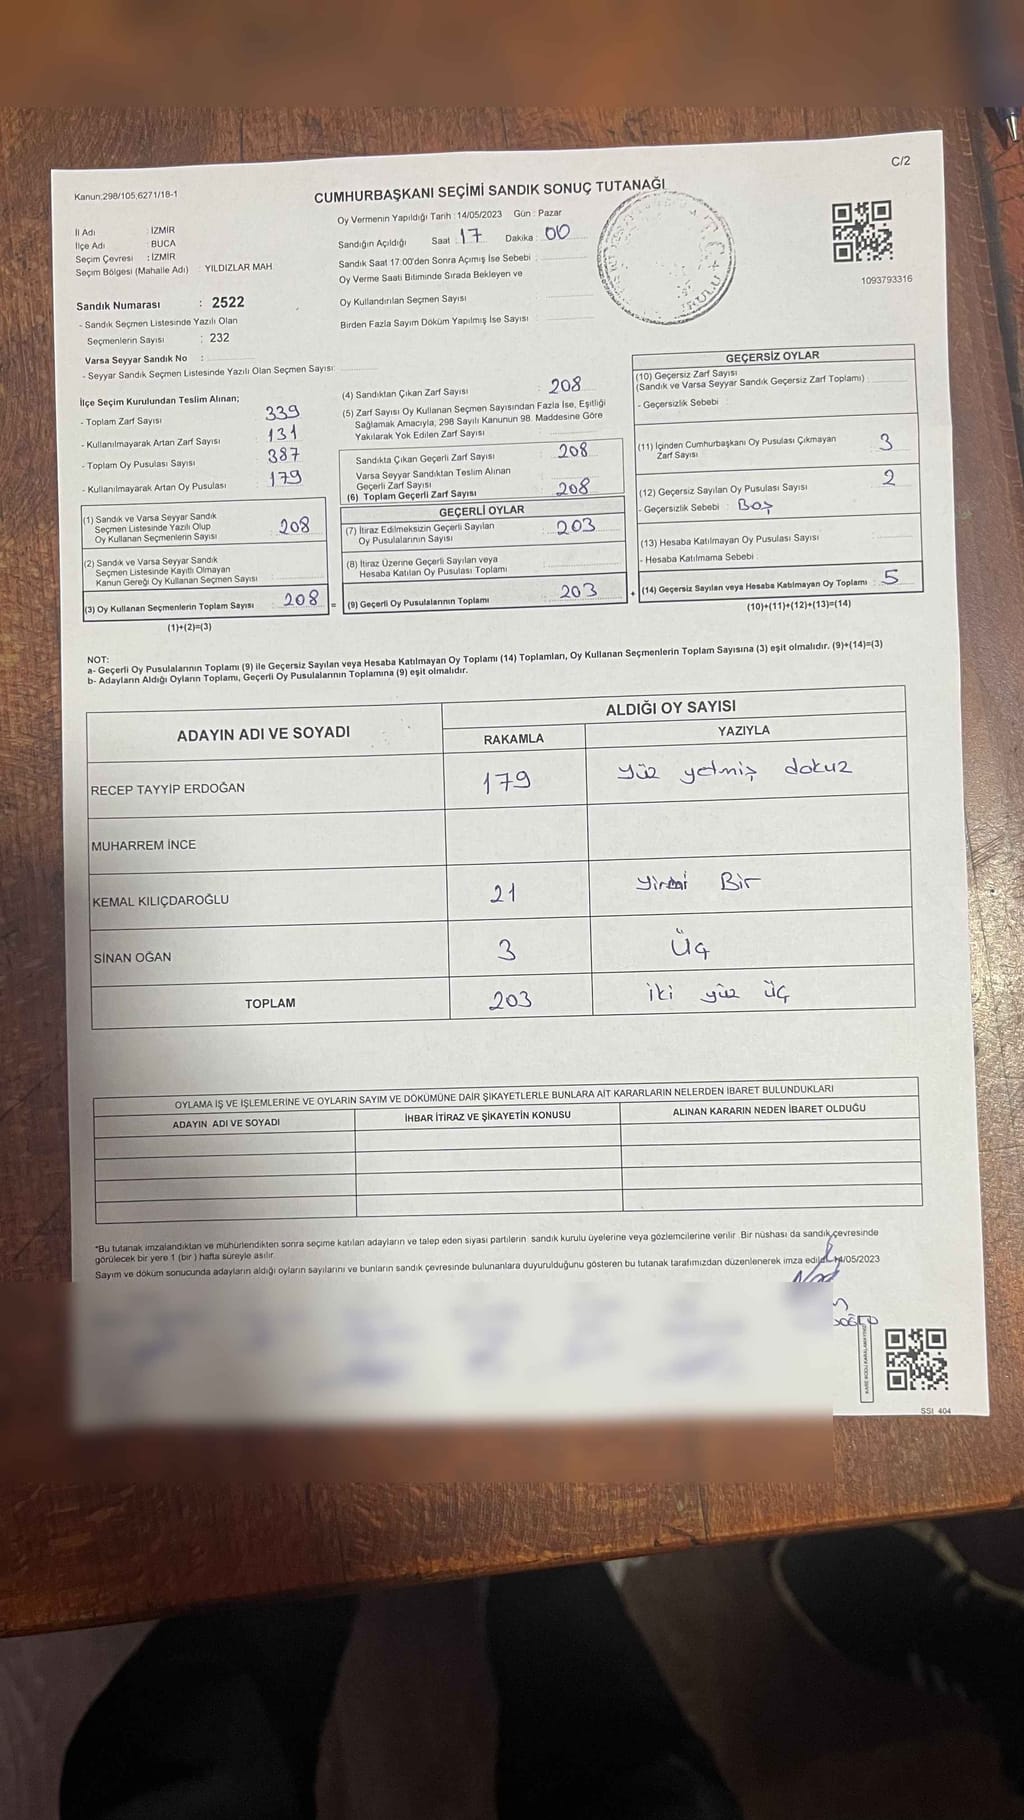 C/2
Kanun:298/105,6271/18-1
CUMHURBAŞKANI SEÇİMİ SANDIK SONUÇ TUTANAĞI
İl Adı : İZMİR
İlçe Adı : BUCA
Seçim Çevresi : İZMİR
Seçim Bölgesi (Mahalle Adı) : YILDIZLAR MAH
Sandık Numarası : 2522
- Sandık Seçmen Listesinde Yazılı Olan
Seçmenlerin Sayısı : 232
Varsa Seyyar Sandık No :
- Seyyar Sandık Seçmen Listesinde Yazılı Olan Seçmen Sayısı:
Oy Vermenin Yapıldığı Tarih : 14/05/2023 Gün : Pazar
Sandığın Açıldığı Saat : 17 Dakika : 00
Sandık Saat 17:00'den Sonra Açımış İse Sebebi :
Oy Verme Saati Bitiminde Sırada Bekleyen ve
Oy Kullandırılan Seçmen Sayısı
Birden Fazla Sayım Döküm Yapılmış İse Sayısı :
1093793316
İlçe Seçim Kurulundan Teslim Alınan;
- Toplam Zarf Sayısı : 339
- Kullanılmayarak Artan Zarf Sayısı : 131
- Toplam Oy Pusulası Sayısı : 387
- Kullanılmayarak Artan Oy Pusulası : 179
(1) Sandık ve Varsa Seyyar Sandık
Seçmen Listesinde Yazılı Olup
Oy Kullanan Seçmenlerin Sayısı : 208
(2) Sandık ve Varsa Seyyar Sandık
Seçmen Listesinde Kayıtlı Olmayan
Kanun Gereği Oy Kullanan Seçmen Sayısı :
(3) Oy Kullanan Seçmenlerin Toplam Sayısı : 208
(1)+(2)=(3)
(4) Sandıktan Çıkan Zarf Sayısı : 208
(5) Zarf Sayısı Oy Kullanan Seçmen Sayısından Fazla İse, Eşitliği
Sağlamak Amacıyla, 298 Sayılı Kanunun 98. Maddesine Göre
Yakılarak Yok Edilen Zarf Sayısı
Sandıkta Çıkan Geçerli Zarf Sayısı : 208
Varsa Seyyar Sandıktan Teslim Alınan
Geçerli Zarf Sayısı
(6) Toplam Geçerli Zarf Sayısı : 208
GEÇERLİ OYLAR
(7) İtiraz Edilmeksizin Geçerli Sayılan
Oy Pusulalarının Sayısı : 203
(8) İtiraz Üzerine Geçerli Sayılan veya
Hesaba Katılan Oy Pusulası Toplamı
= (9) Geçerli Oy Pusulalarının Toplamı : 203
GEÇERSİZ OYLAR
(10) Geçersiz Zarf Sayısı
(Sandık ve Varsa Seyyar Sandık Geçersiz Zarf Toplamı) :
- Geçersizlik Sebebi :
(11) İçinden Cumhurbaşkanı Oy Pusulası Çıkmayan
Zarf Sayısı : 3
(12) Geçersiz Sayılan Oy Pusulası Sayısı : 2
- Geçersizlik Sebebi : Boş
(13) Hesaba Katılmayan Oy Pusulası Sayısı :
- Hesaba Katılmama Sebebi :
+ (14) Geçersiz Sayılan veya Hesaba Katılmayan Oy Toplamı : 5
(10)+(11)+(12)+(13)=(14)
NOT:
a- Geçerli Oy Pusulalarının Toplamı (9) ile Geçersiz Sayılan veya Hesaba Katılmayan Oy Toplamı (14) Toplamları, Oy Kullanan Seçmenlerin Toplam Sayısına (3) eşit olmalıdır. (9)+(14)=(3)
b- Adayların Aldığı Oyların Toplamı, Geçerli Oy Pusulalarının Toplamına (9) eşit olmalıdır.
ADAYIN ADI VE SOYADI ALDIĞI OY SAYISI
RAKAMLA YAZIYLA
RECEP TAYYİP ERDOĞAN 179 yüz yetmiş dokuz
MUHARREM İNCE
KEMAL KILIÇDAROĞLU 21 yirmi Bir
SİNAN OĞAN 3 Üç
TOPLAM 203 iki yüz üç
OYLAMA İŞ VE İŞLEMLERİNE VE OYLARIN SAYIM VE DÖKÜMÜNE DAİR ŞİKAYETLERLE BUNLARA AİT KARARLARIN NELERDEN İBARET BULUNDUKLARI
ADAYIN ADI VE SOYADI İHBAR İTİRAZ VE ŞİKAYETİN KONUSU ALINAN KARARIN NEDEN İBARET OLDUĞU
*Bu tutanak imzalandıktan ve mühürlendikten sonra seçime katılan adayların ve talep eden siyasi partilerin sandık kurulu üyelerine veya gözlemcilerine verilir. Bir nüshası da sandık çevresinde
görülecek bir yere 1 (bir) hafta süreyle asılır.
Sayım ve döküm sonucunda adayların aldığı oyların sayılarını ve bunların sandık çevresinde bulunanlara duyurulduğunu gösteren bu tutanak tarafımızdan düzenlenerek imza edildi. 14/05/2023
SSI_404